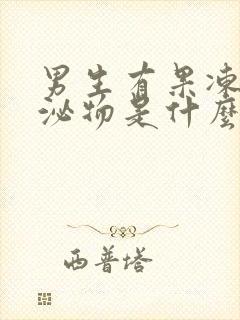 男生有果凍
泌物是什麼
西普塔